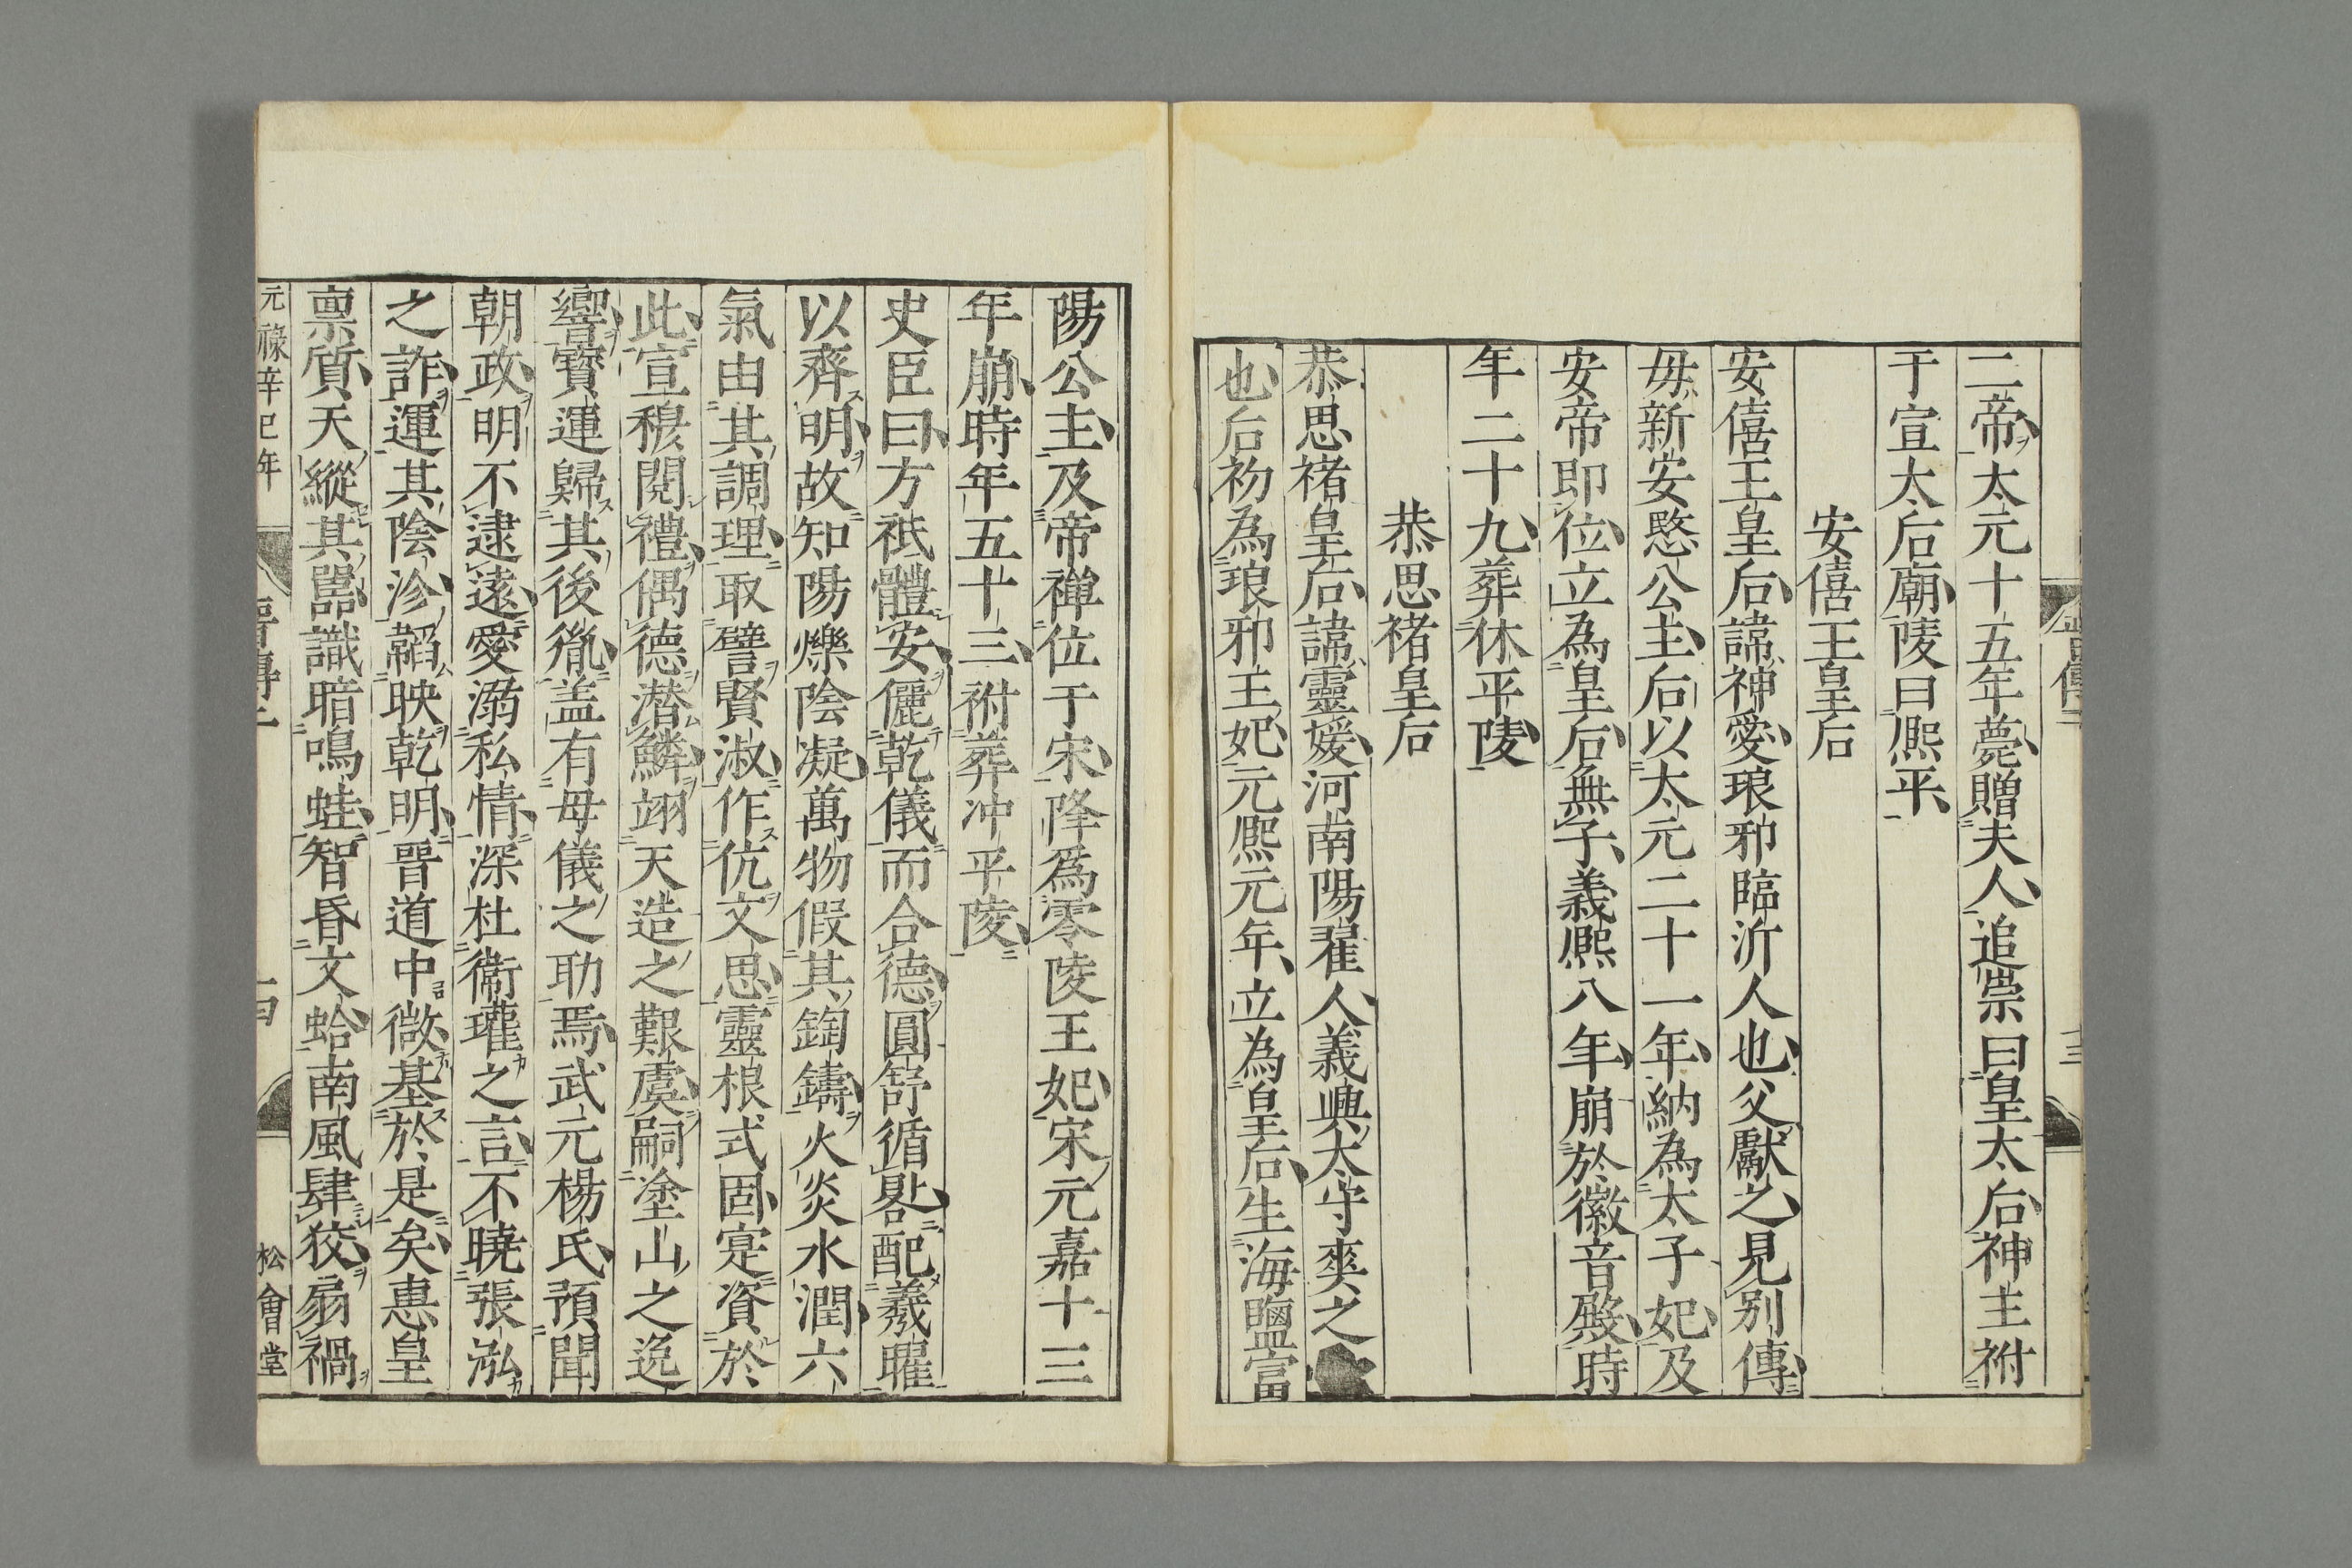 二帝太元十五年薨贈夫人追崇曰皇太后神主祔
于宣太后廟陵曰熈平
安僖王皇后
安僖王皇后諱神愛琅邪臨沂人也父獻之見别傳
毋新安愍公主后以太元二十一年納為太子妃及
安帝即位立為皇后無子義熈八年崩於徽音殿時
年二十九葬休平陵
恭思褚皇后
恭思褚皇后諱靈媛河南陽翟人義興太守爽之
也后初為琅邪王妃元熈元年立為皇后生海鹽富
陽公主及帝禅位于宋降爲零陵王妃宋元嘉十三
年崩時年五十三祔葬冲平陵
史臣曰方祇體安儷乾儀而合德圓舒循晷配羲曜
以齊明故知陽爍陰凝萬物假其鉤鑄火炎水潤六
氣由其調理取譬賢淑作伉文思靈根式固寔資於
此宣穆閲禮偶德潜鱗翊天造之艱虞嗣塗山之逸
響寳運歸其後胤盖有母儀之助焉武元楊氏預聞
朝政明不逮遠愛溺私情深杜衞瓘之言不曉張泓
之詐運其陰沴韜映乾明晋道中微基於是矣惠皇
禀質天縱其嚚識暗鳴蛙智昏文蛤南風肆狡扇禍
元禄辛巳年
松會堂